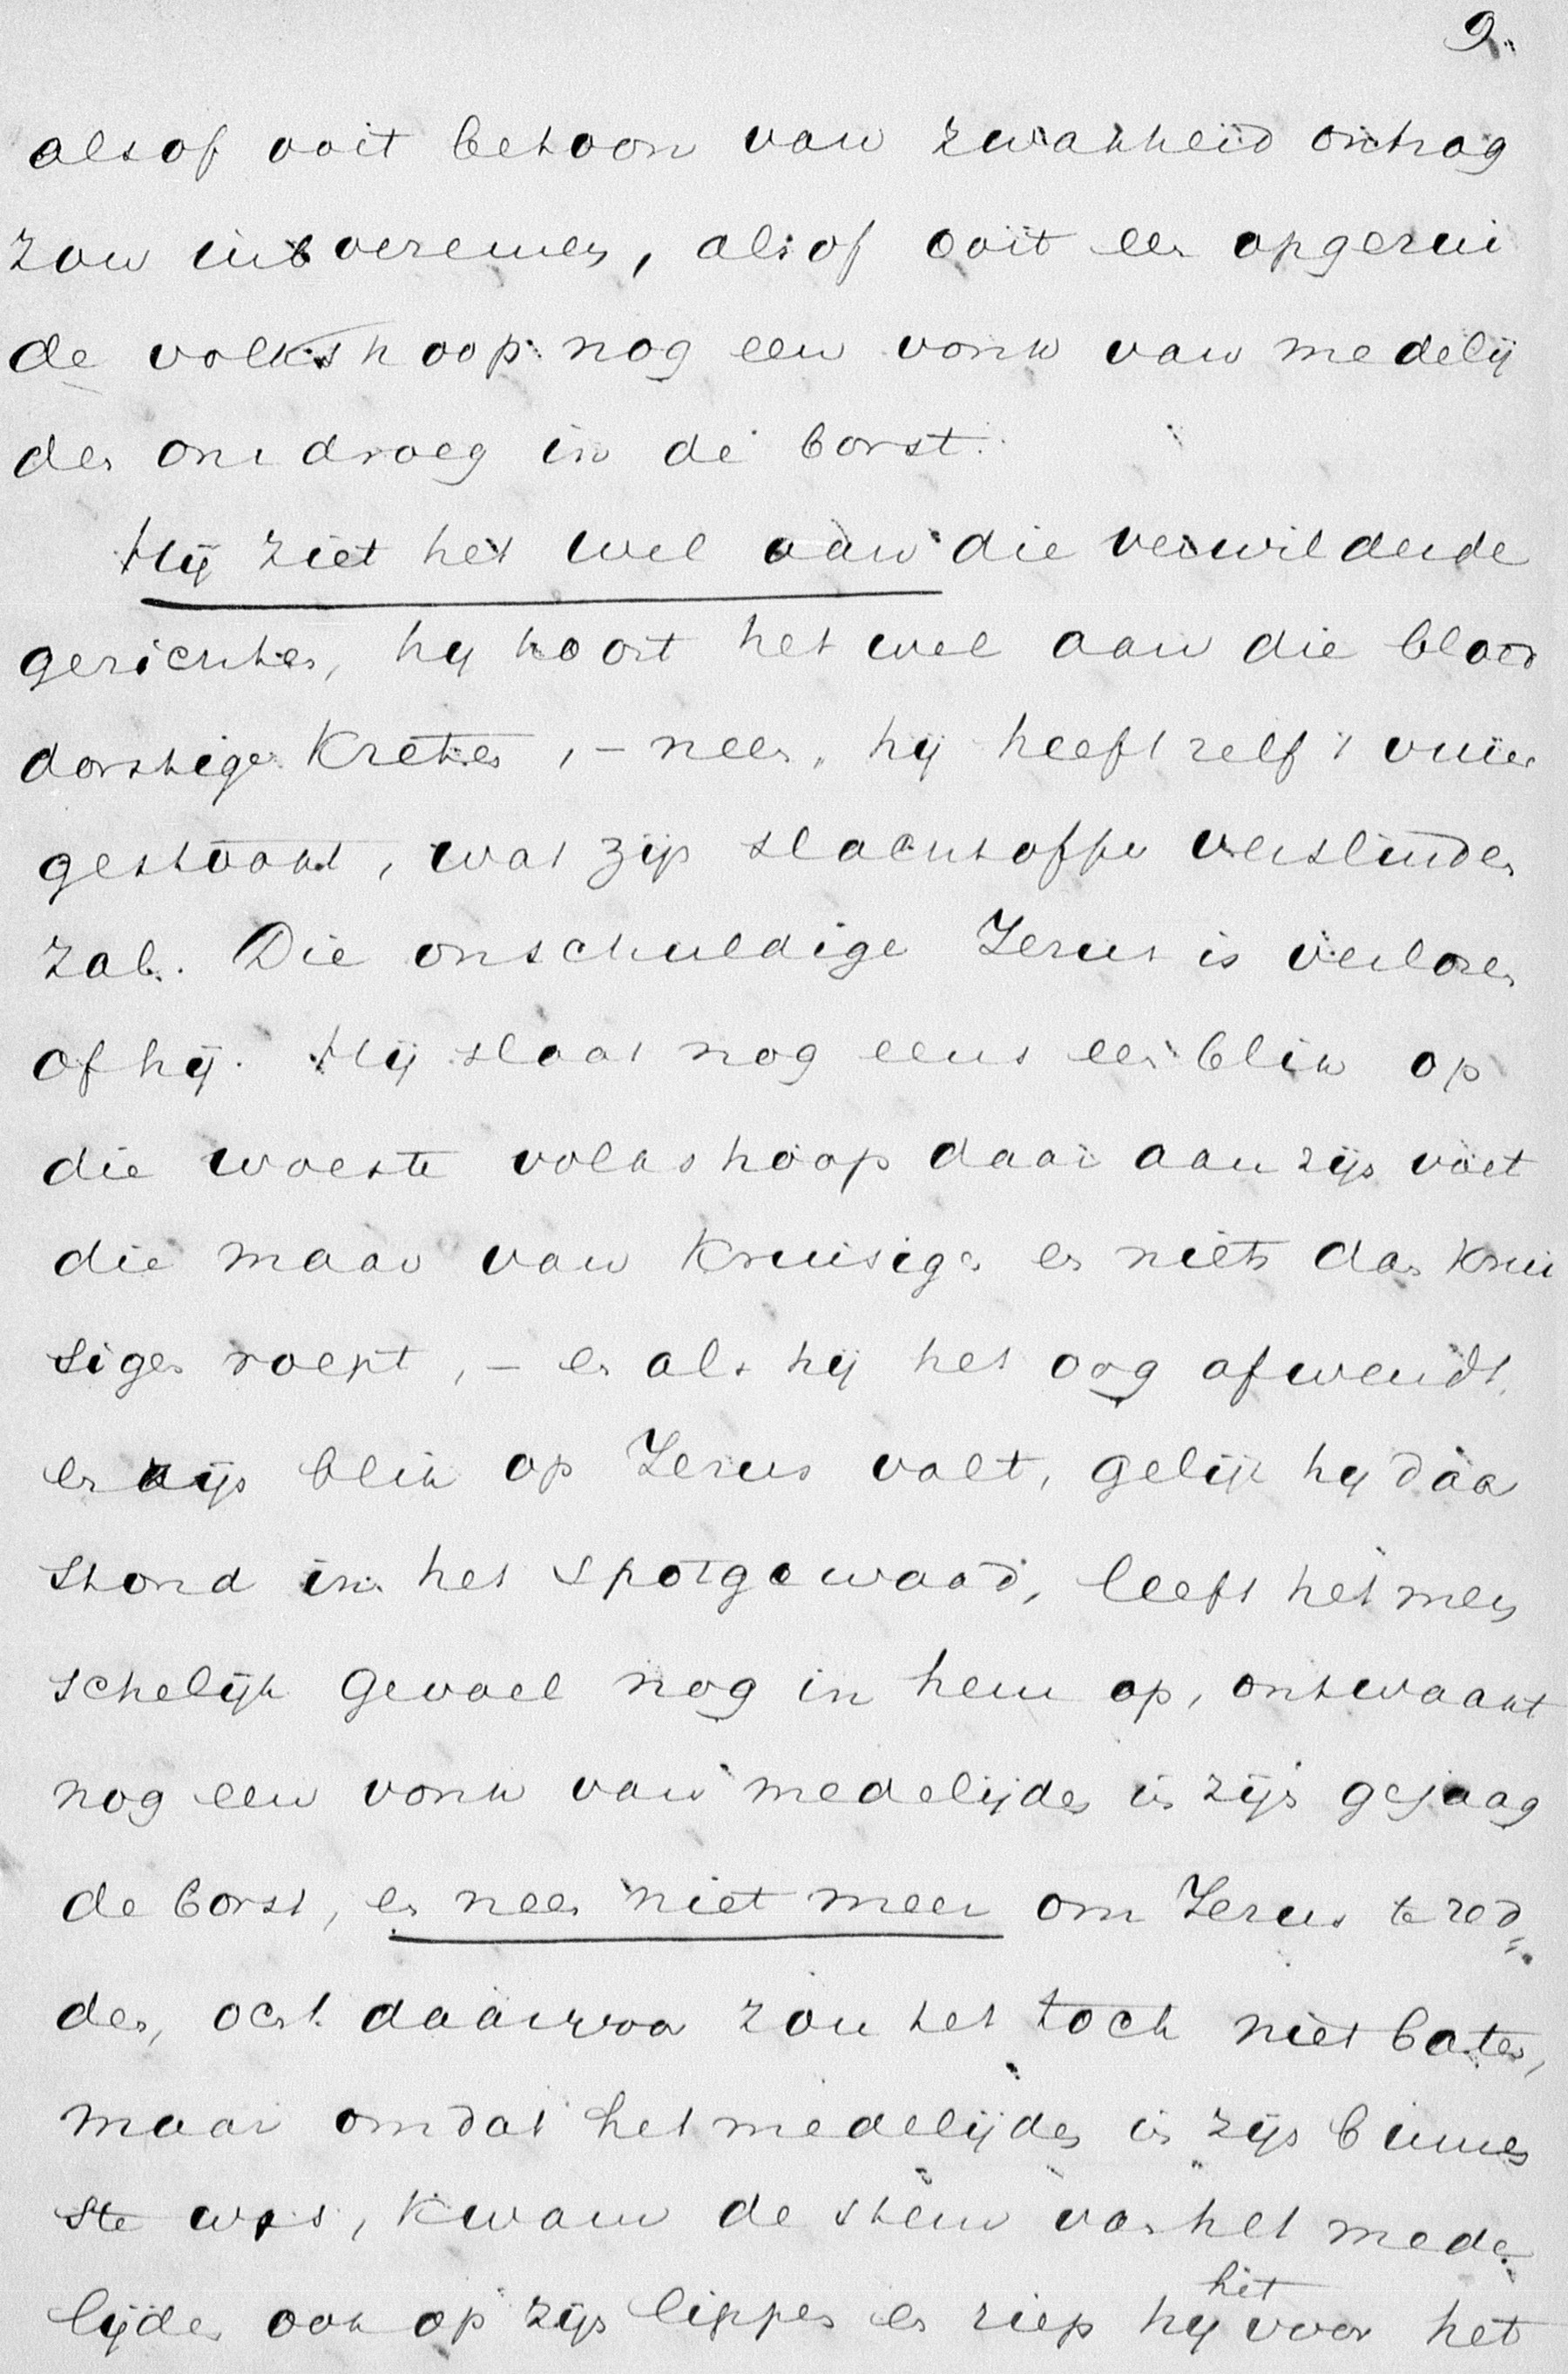 9.
alsof ooit betoon van zwakheid ontzag
zou inboezemen, alsof ooit een opgerui
de volkshoop nog een vonk van medelij
den omdroeg in de borst.
Hij ziet het wel aan die verwilderde
gezichten, hij hoort het wel aan die bloed
dorstige kreten, – neen, hij heeft zelf 't vuur
gestookt, wat zijn slachtoffer verslinden
zal. Die onschuldige Jezus is verloren
of hij. Hij slaat nog eens een blik op
die woeste volkshoop daar aan zijn voet
die maar van kruisigen en niets dan krui
sigen roept, – en als hij het oog afwendt,
en zijn blik op Jezus valt, gelijk hij daar
stond in het spotgewaad, leeft het men
schelijk gevoel nog in hem op, ontwaakt
nog een vonk van medelijden in zijn gejaag
de borst, en neen niet meer om Jezus te red=
den, och daarvoor zou het toch niet baten,
maar omdat het medelijden in zijn binnen
ste was, kwam de stem van het mede
lijden ook op zijn lippen en riep hij het voor het